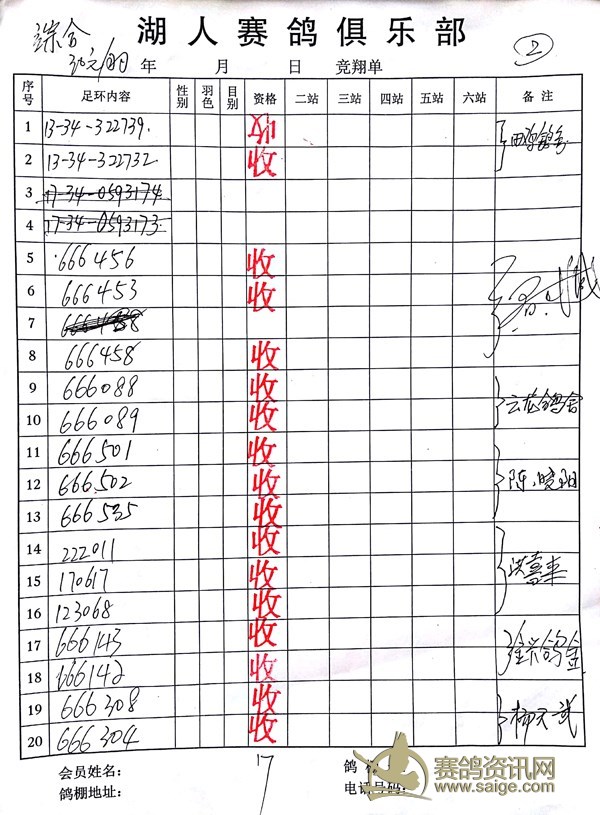 综合 湖人赛鸽俱乐部 ②
年 月 日 竞翔单
序号 足环内容 性别 羽色 目别 资格 二站 三站 四站 五站 六站 备注
1 13-34-322739. 收
2 13-34-322732 收
3 17-34-0593174
4 17-34-0593173
5 666456 收
6 666453 收
7
8 666458 收
9 666088 收
10 666089 收 云龙鸽舍
11 666501 收
12 666502 收 陈晓阳
13 666535 收
14 222011 收
15 170617 收 洪喜来
16 123068 收
17 666143 收
18 666142 收
19 666308 收
20 666304 收 杨天武
会员姓名： 17 鸽
鸽棚地址： 电话号码：
赛鸽资讯网
www.saige.com